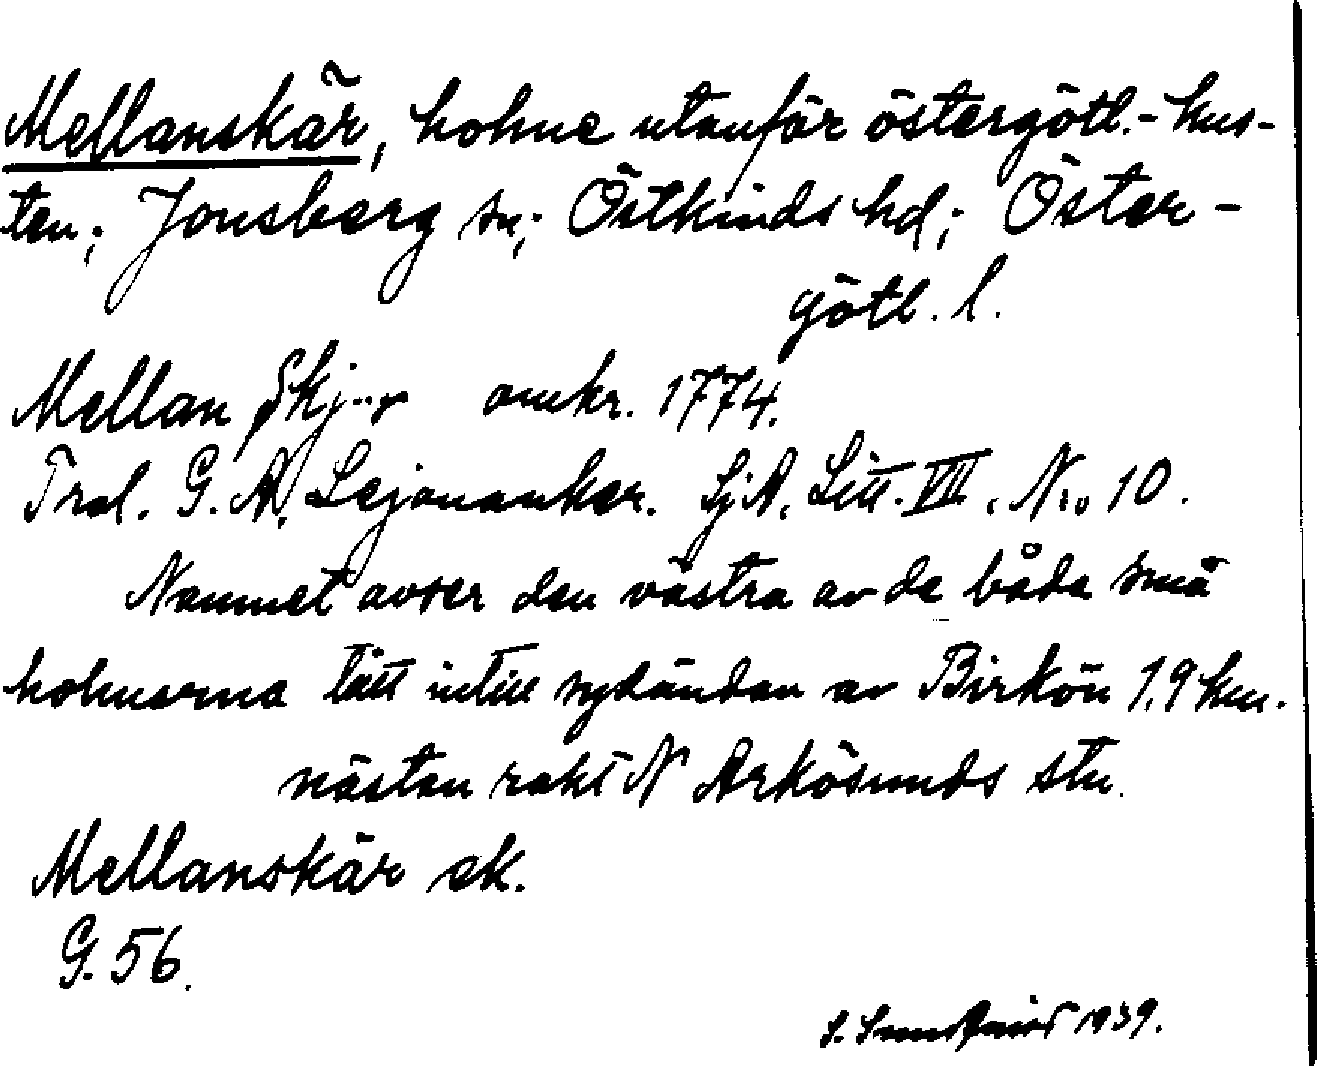 Mellanskär, holme utanför östergötl.-kus-
ten; Jonsberg sn; Östkinds hd; Öster-
götl. l.
Mellan Skj..r omkr. 1774.
Trol. G. A. Lejonanker. SjA. Litt. VIII. N:o 10.
Namnet avser den västra av de båda små
holmarna tätt intill sydändan av Birkön 1,9 km.
nästan rakt N Arkösunds stn.
Mellanskär ek.
G. 56.
S. 1939.